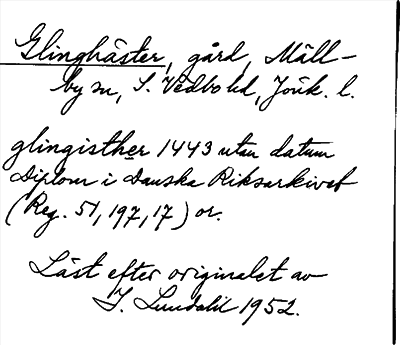 Glinghäster, gård, Mäll-
by sn, S. Vedbo hd, Jönk. l.
glingisther 1443 utan datum
Diplom i Danska Riksarkivet
(Reg. 51, 197, 17) or.
Läst efter originalet av
I. Lundahl 1952.